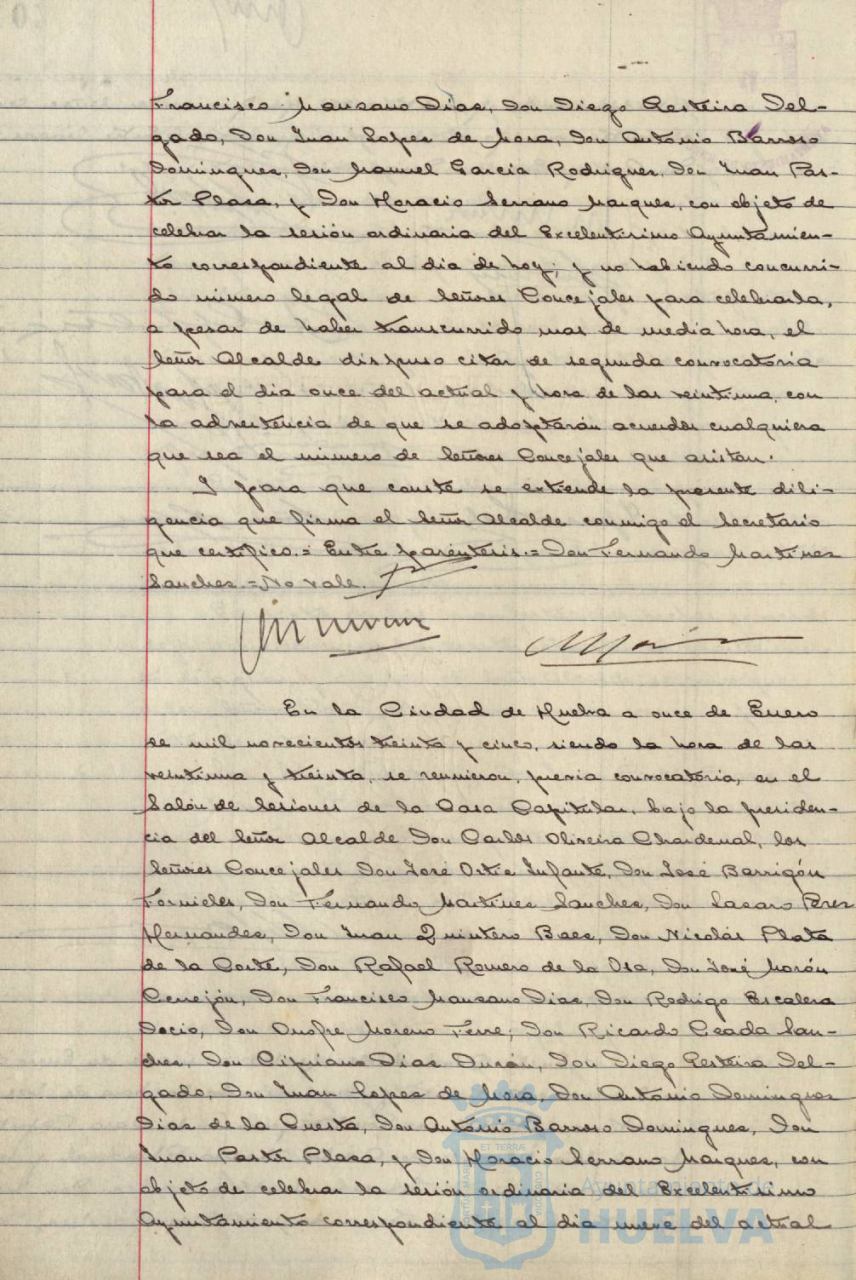 Francisco Manzano Dias, Don Diego Resteira Del-
gado, Don Juan Lopes de Mora, Don Antonio Barroso
Domingues, Don Manuel García Rodrigues, Don Juan Pas-
tor Plasa, y Don Horacio Serrano Marques, con objeto de
celebrar la sesión ordinaria del Excelentisimo Ayuntamien-
to correspondiente al dia de hoy; y no habiendo concurri-
do número legal de Señores Concejales para celebrarla,
a pesar de haber transcurrido mas de media hora, el
Señor Alcalde dispuso citar de segunda convocatoria
para el dia once del actual y hora de las veintiuna, con
la advertencia de que se adoptarán acuerdos cualquiera
que sea el número de Señores Concejales que asistan.
Y para que conste se extiende la presente dili-
gencia que firma el Señor Alcalde conmigo el Secretario
que certifico.= Entre paréntesis.= Don Fernando Martínes
Sanches.= No vale.
En la Ciudad de Huelva a once de Enero
de mil novecientos treinta y cinco, siendo la hora de las
veintiuna y treinta, se reunieron, previa convocatoria, en el
Salón de Sesiones de la Casa Capitular, bajo la presiden-
cia del Señor Alcalde Don Carlos Oliveira Chardenal, los
Señores Concejales Don José Ortis Infante, Don José Barrigón
Fornieles, Don Fernando Martínes Sanches, Don Lasaro Peres
Hernandes, Don Juan Quintero Baes, Don Nicolás Plata
de la Corte, Don Rafael Romero de la Osa, Don José Morón
Cerrejón, Don Francisco Mansano Dias, Don Rodrigo Escalera
Docio, Don Onofre Moreno Ferre; Don Ricardo Ceada San-
ches, Don Cipriano Dias Durán, Don Diego Resteira Del-
gado, Don Juan Lopes de Mora, Don Antonio Domingues
Dias de la Cuesta, Don Antonio Barroso Domingues, Don
Juan Pastor Plasa, y Don Horacio Serrano Marques, con
objeto de celebrar la sesión ordinaria del Excelentisimo
Ayuntamiento correspondiente al dia nueve del actual
Ayuntamiento de
HUELVA